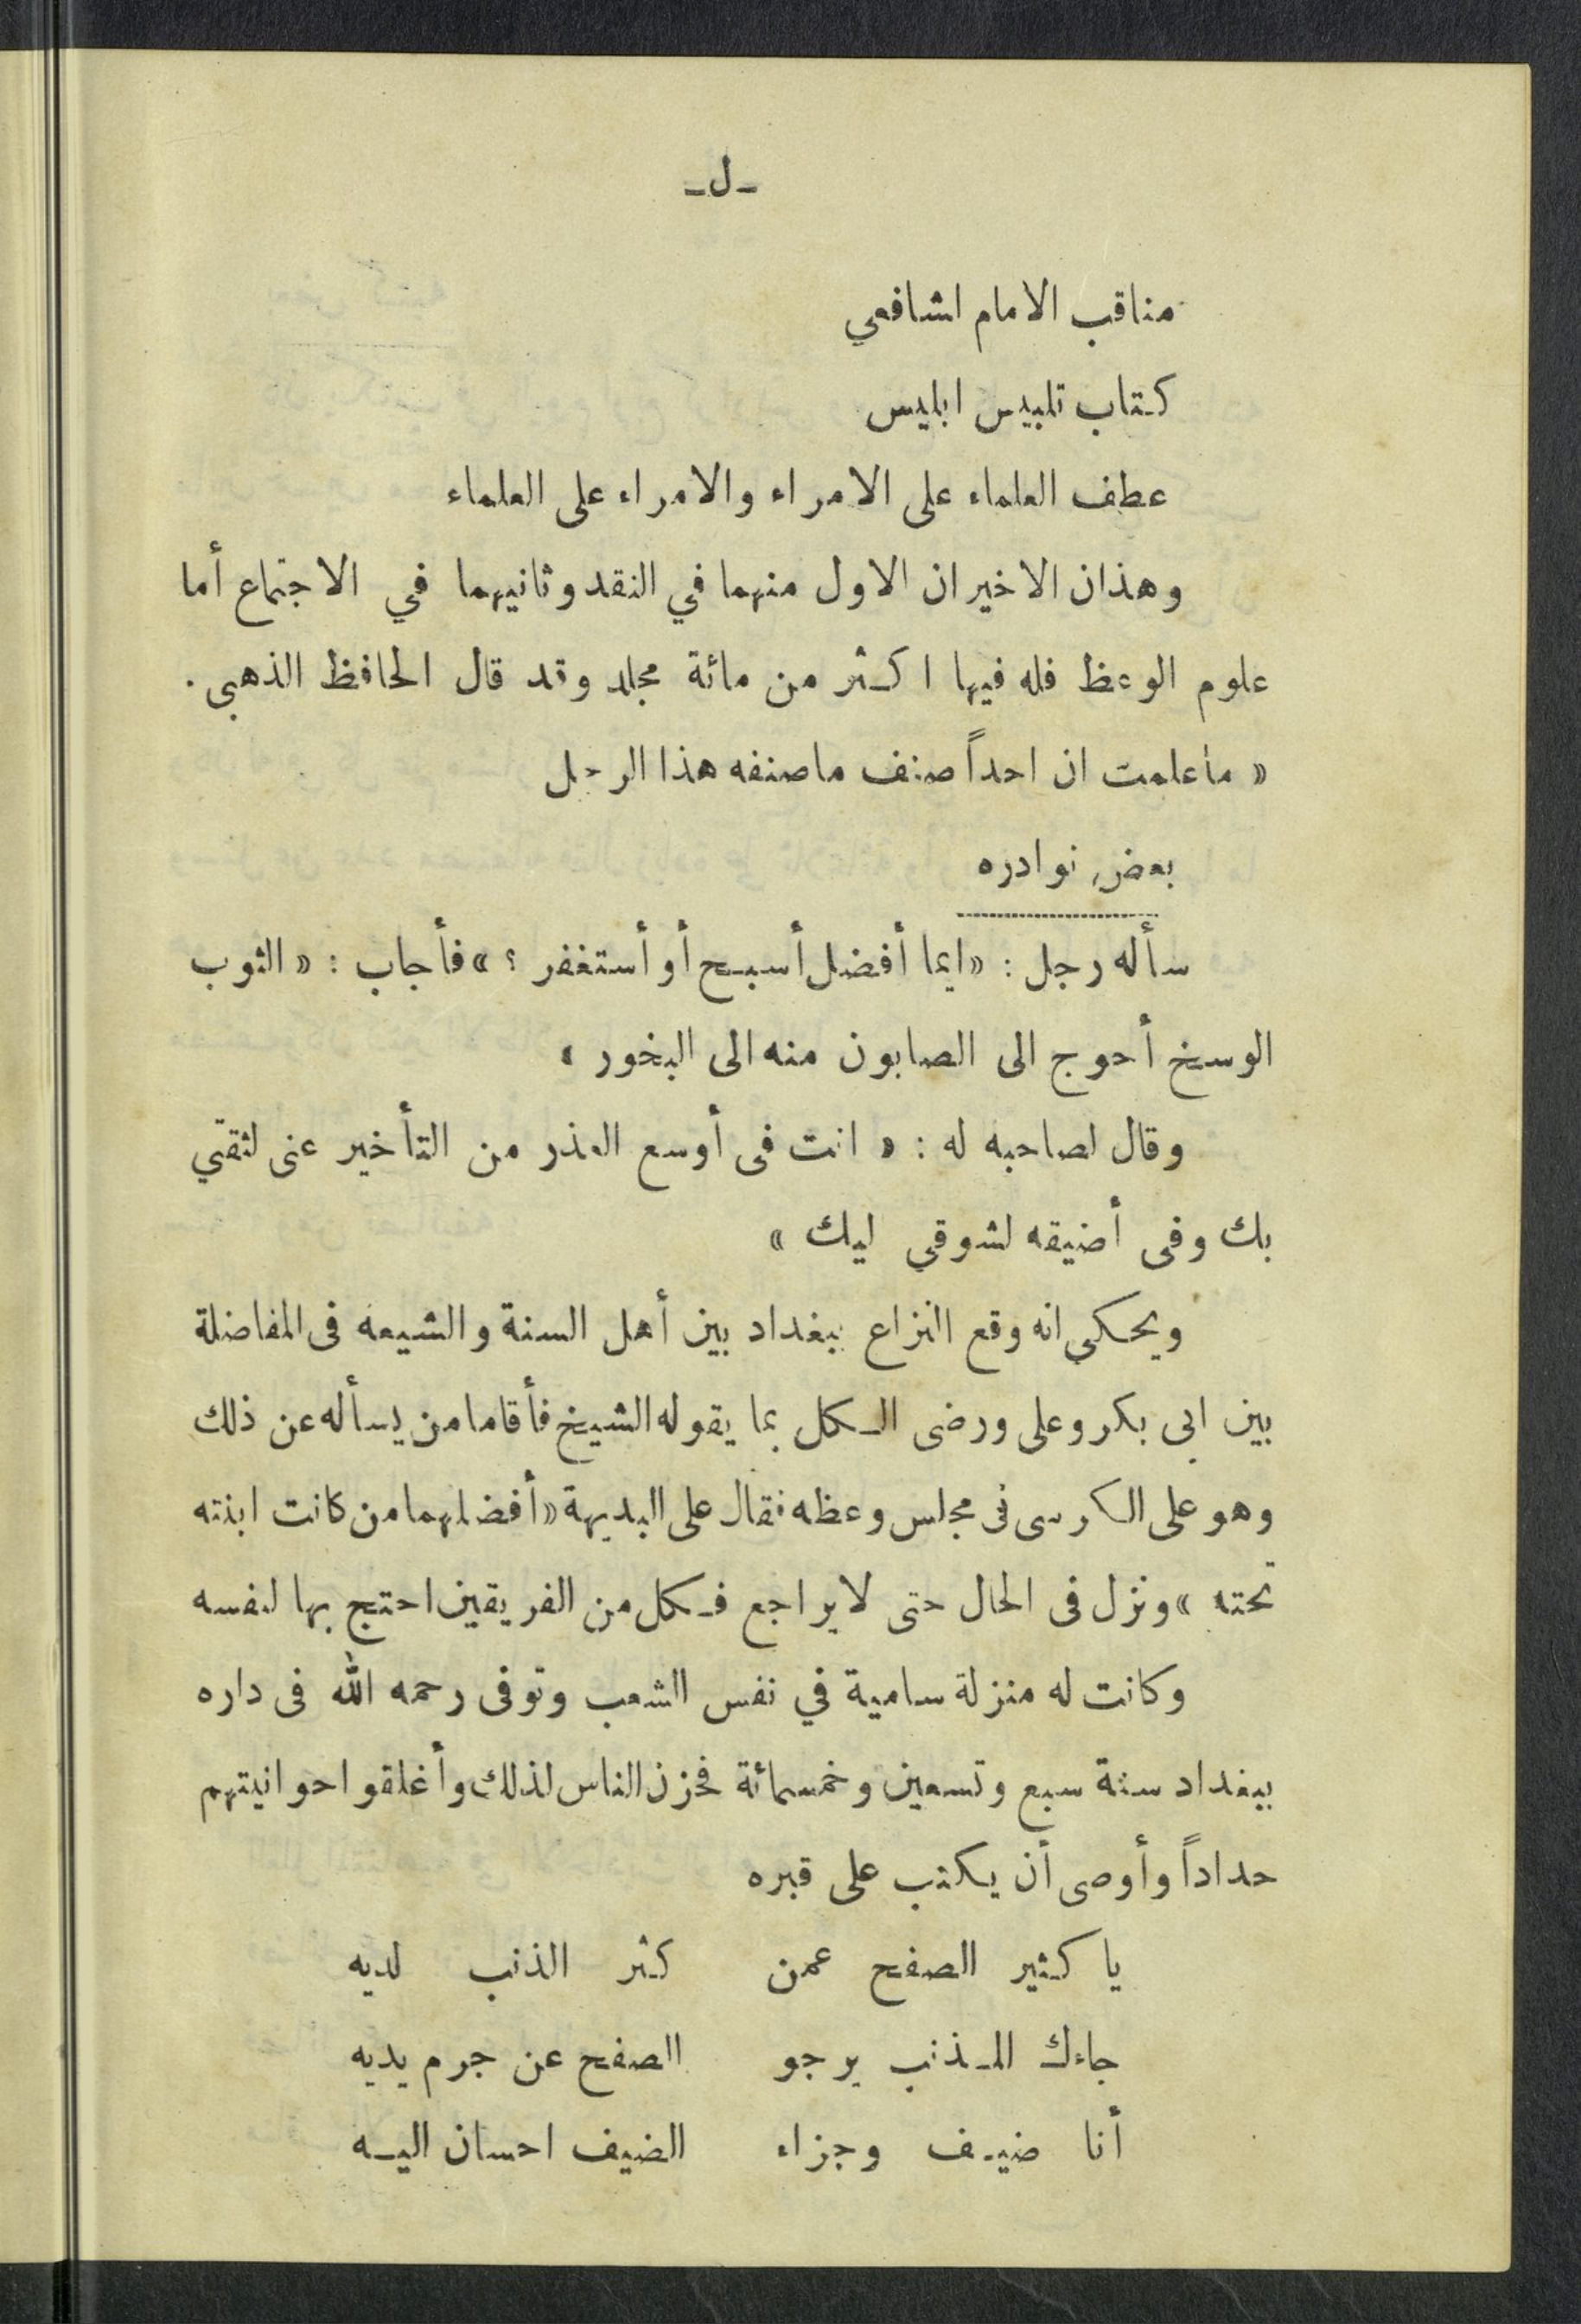 ـ ل ـ
مناقب الامام اشافعي
كتاب تلبيس ابليس
عطف العلماء على الامراء والامراء على العلماء
وهذان الاخيران الاول منهما في النقد وثانيهما في الاجتماع أما
علوم الوعظ فله فيها اكثر من مائة مجلد وقد قال الحافظ الذهبي .
« ماعلمت ان احداً صنف ماصنفه هذا الرجل
بعض نوادره
سأله رجل : « ايما أفضل أسبح أو أستغفر ؟ » فأجاب : « الثوب
الوسخ أحوج الى الصابون منه الى البخور »
وقال لصاحبه له : « انت فى أوسع العذر من التأخير عنى لثقتي
بك وفى أضيقه لشوقي ليك »
ويحكى انه وقع النزاع ببغداد بين أهل السنة والشيعه فى المفاضلة
بين ابى بكر وعلى ورضى الكل بما يقوله الشيخ فأقاما من يسأله عن ذلك
وهو على الكرسى فى مجلس وعظه فقال على البديهة « أفضلهما من كانت ابنته
تحته » ونزل فى الحال حتى لا يراجع فكل من الفريقين احتج بها لنفسه
وكانت له منزلة سامية في نفس الشعب وتوفى رحمه الله فى داره
ببغداد سنة سبع وتسعين وخمسمائة فحزن الناس لذلك وأغلقوا حوانيتهم
حداداً وأوصى أن يكتب على قبره
يا كثير الصفح عمن كثر الذنب لديه
جاءك المذنب يرجو الصفح عن جرم يديه
أنا ضيف وجزاء الضيف احسان اليه